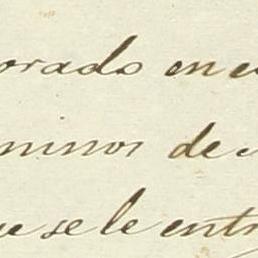 orado en e
minos de
ue se le entr